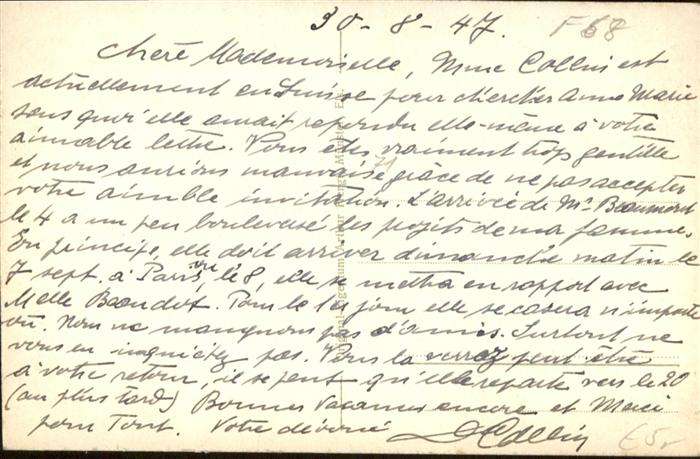 30-8-47. F68
Chère Mademoiselle, Mme Collin est
actuellement en Suisse pour chercher Anne Marie
sans quoi elle aurait répondu elle-même à votre
aimable lettre. Vous êtes vraiment trop gentille
et nous aurions mauvaise grâce de ne pas accepter
votre aimable invitation. L'arrivée de Mr Beaumont
le 4 a un peu bouleversé les projets de ma femme.
En principe, elle doit arriver dimanche matin le
7 sept. à Paris, le 8, elle se mettra en rapport avec
Melle Beaudot. Pour le 1er jour elle se casera n'importe
où. Nous ne manquons pas d'amis. Surtout ne
vous en inquiétez pas. Vous la verrez peut être
à votre retour, il se peut qu'elle reparte vers le 20
(au plus tard) Bonnes Vacances encore et Merci
pour Tout. Votre dévoué Collin €5